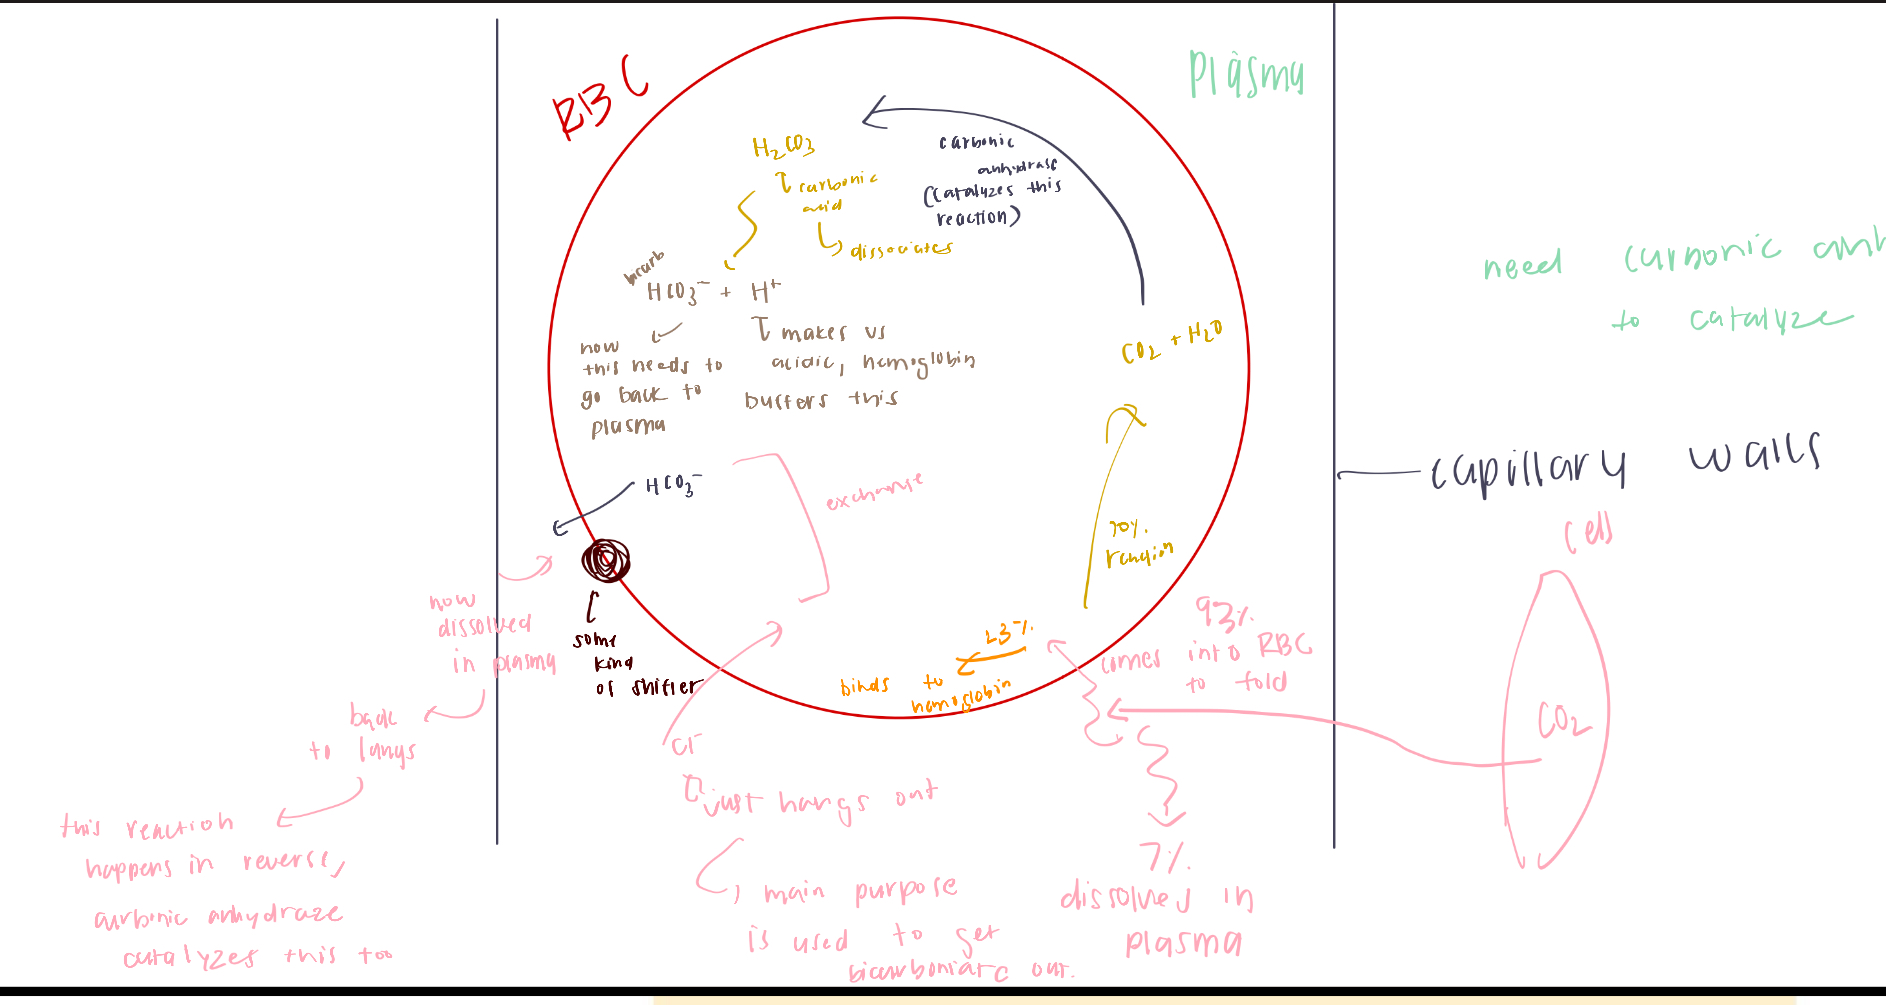 RBC
Plasma
H₂CO₃
carbonic
acid
dissociates
carbonic
anhydrase
(catalyzes this
reaction)
bicarb
HCO₃⁻ + H⁺
now
this needs to
go back to
plasma
makes us
acidic, hemoglobin
buffers this
CO₂ + H₂O
need carbonic anh
to catalyze
capillary walls
HCO₃⁻
exchange
70%.
reaction
cell
CO₂
now
dissolved
in plasma
some
kind
of shifter
23%.
binds to
hemoglobin
93%.
comes into RBC
to fold
back
to lungs
Cl⁻
just hangs out
this reaction
happens in reverse,
carbonic anhydraze
catalyzes this too
main purpose
is used to get
bicarboniate out.
7%.
dissolves in
plasma